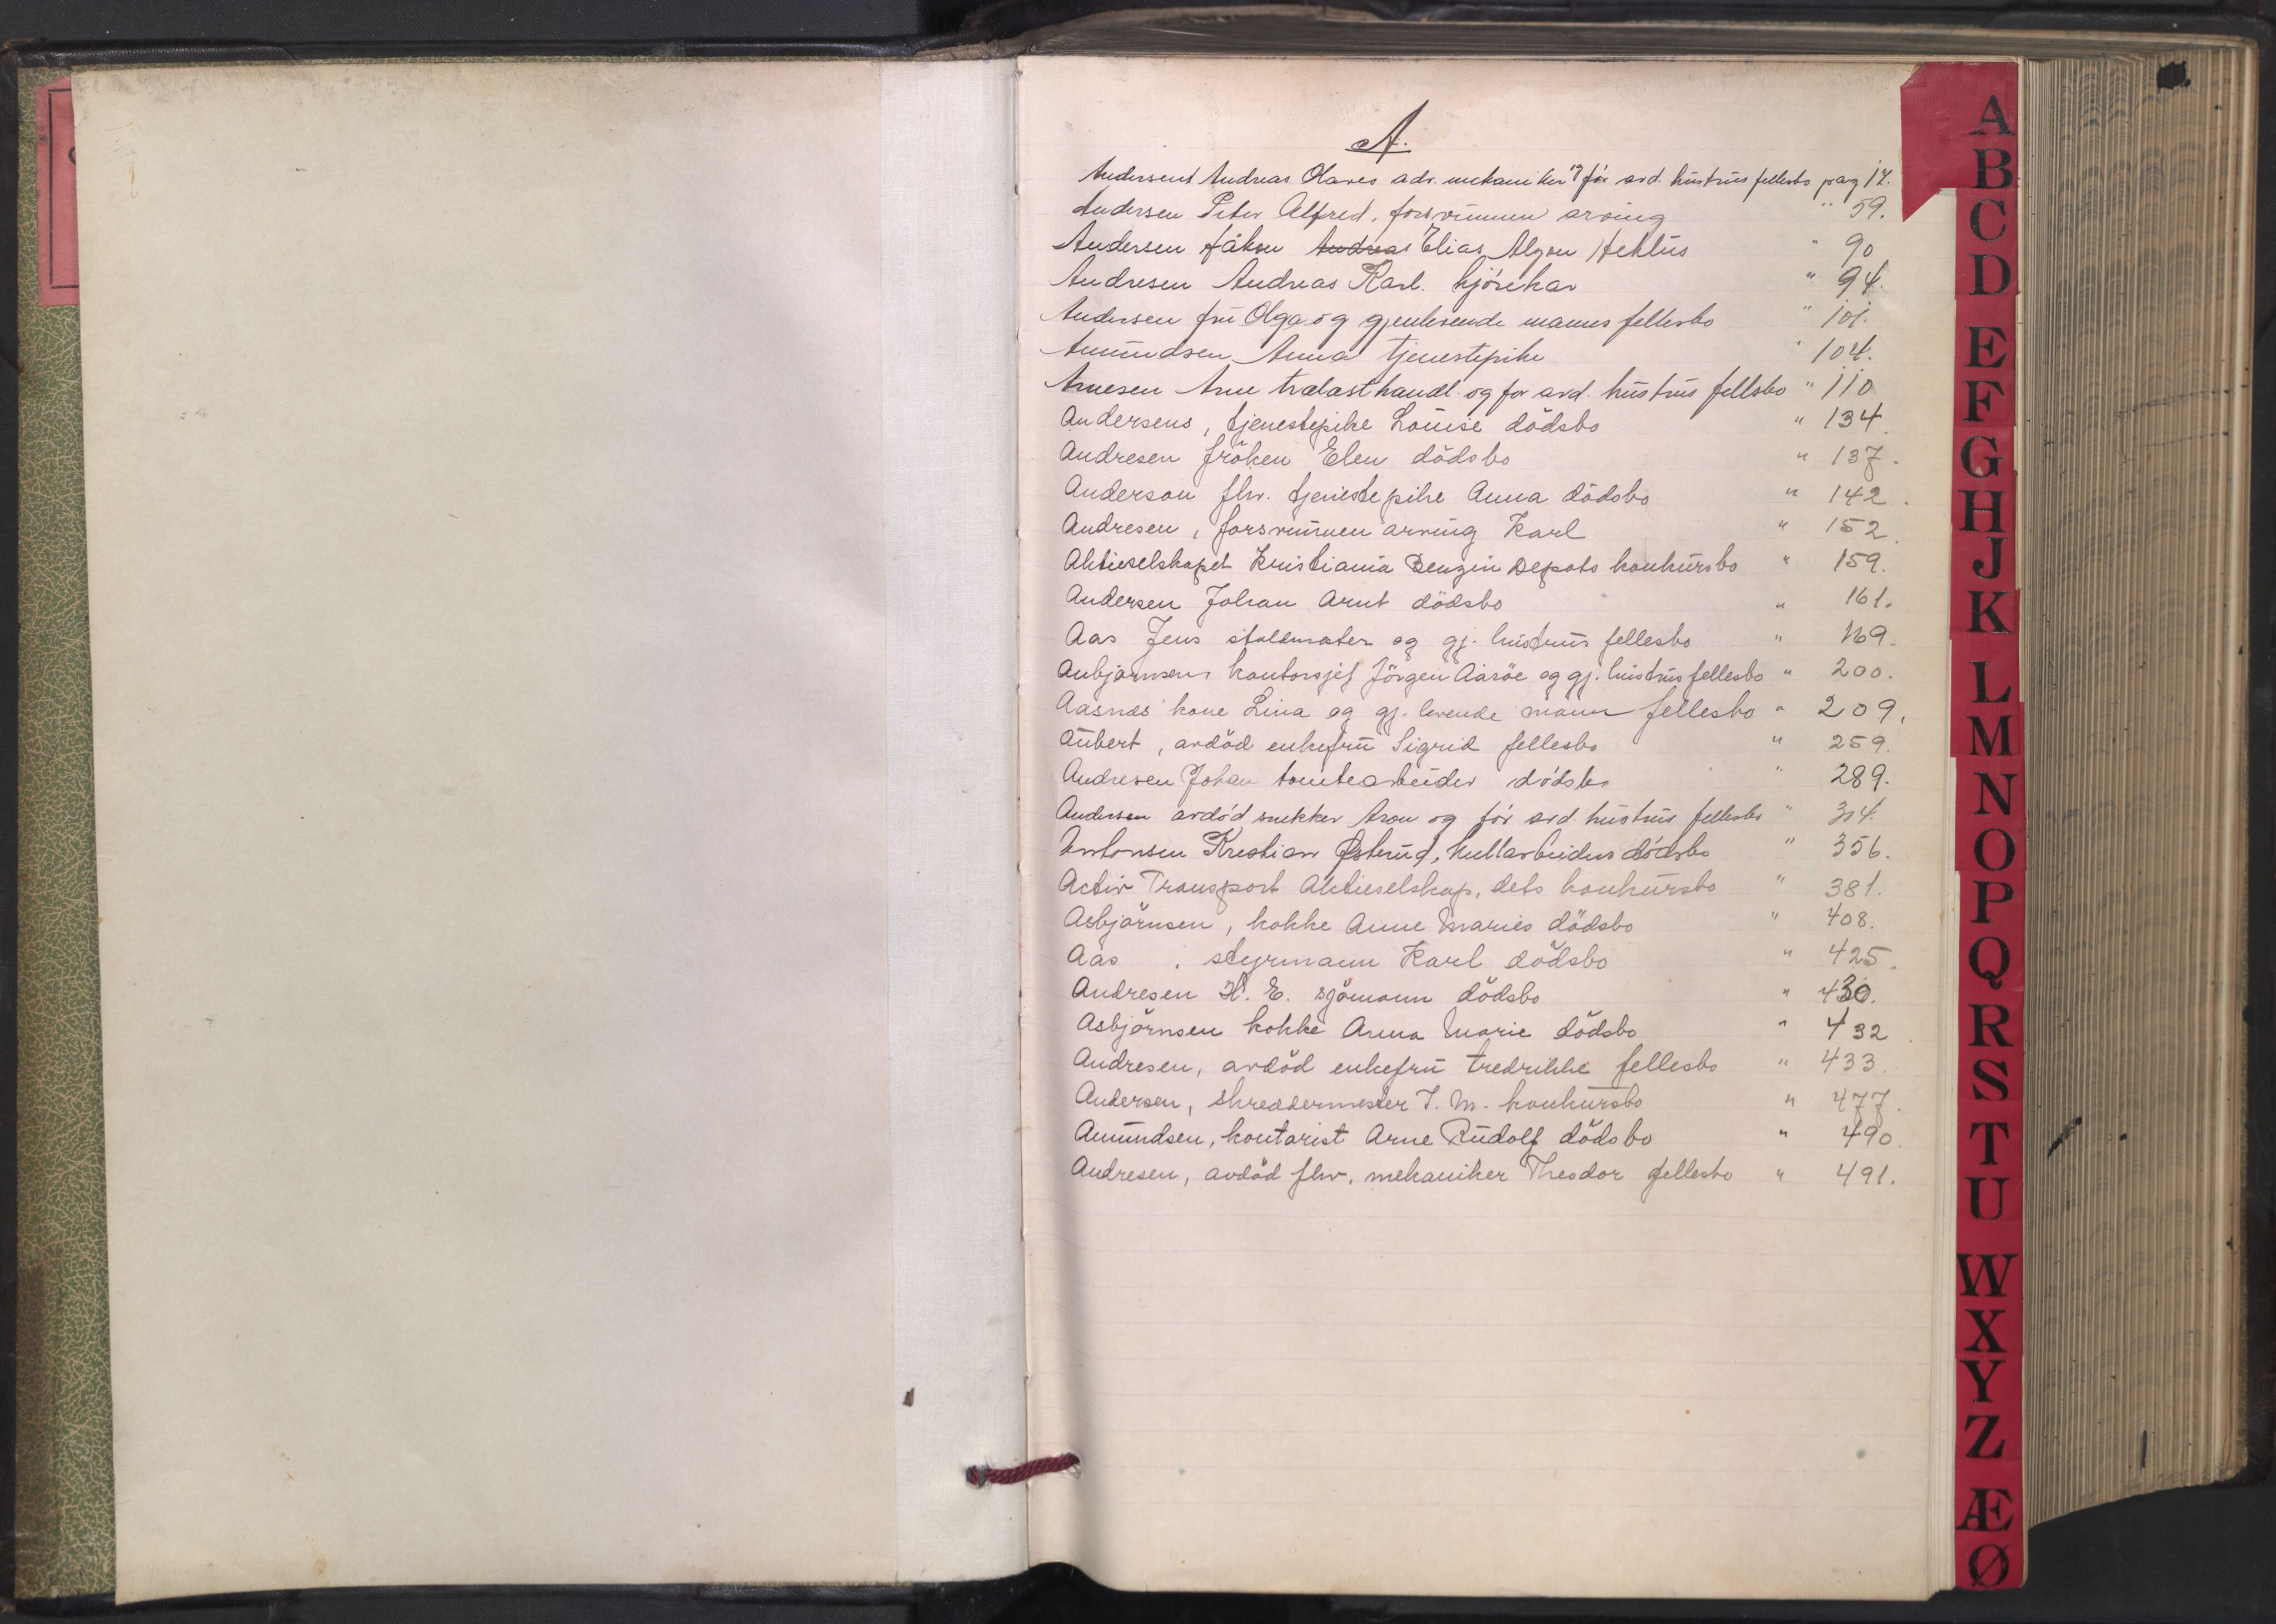 A.
Andersens Andreas Olaves adr. mekaniker og før avd. hustrus fellesbo pag 12.
Andersen Peter Alfred, forsvunnen arving " 59.
Andersen Håkon Andreas Elias Algon Hektus " 90
Andresen Andreas Karl. kjørekar " 94.
Andersen fru Olga og gjenlevende manns fellesbo " 101.
Amundsen Anna tjenestepike " 104.
Arnesen Arne trælasthandl. og for avd. hustrus fellsbo " 110
Andersens, tjenestepike Louise dödsbo " 134.
Andresen fröken Elen dödsbo " 137.
Anderson fhv. tjenestepike Anna dödsbo " 142.
Andresen, forsvunnen arving Karl " 152.
Aktieselskapet Kristiania Benzin Depots konkursbo " 159.
Andersen Johan Arnt dödsbo " 161.
Aas Jens stallmester og gj. hustrus fellesbo " 169.
Anbjørnsens kontorsjef Jörgen Aaröe og gj. hustrus fellesbo " 200.
Aasnæs kone Lina og gj. levende mann fellesbo " 209.
Aubert, avdöd enkefru Sigrid fellesbo " 259.
Andresen Johan tomtearbeider dødsbo " 289.
Andersen avdød snekker Aron og før avd. hustrus fellesbo " 314.
Antonsen Kristian Østerud, kullarbeiders dødsbo " 356.
Activ Transport Aktieselskap, dets konkursbo " 381.
Asbjörnsen, kokke Anne Maries dödsbo " 408.
Aas , styrmann Karl dödsbo " 425.
Andresen H. E. sjömann dödsbo " 430.
Asbjörnsen kokke Anna Marie dödsbo " 432.
Andresen, avdöd enkefru Fredrikke fellesbo " 433.
Andersen, skreddermester J. M. konkursbo " 477.
Amundsen, kontorist Arne Rudolf dödsbo " 490.
Andresen, avdöd fhv. mekaniker Theodor fellesbo " 491.
A
B
C
D
E
F
G
H
J
K
L
M
N
O
P
Q
R
S
T
U
W
X
Y
Z
Æ
Ø